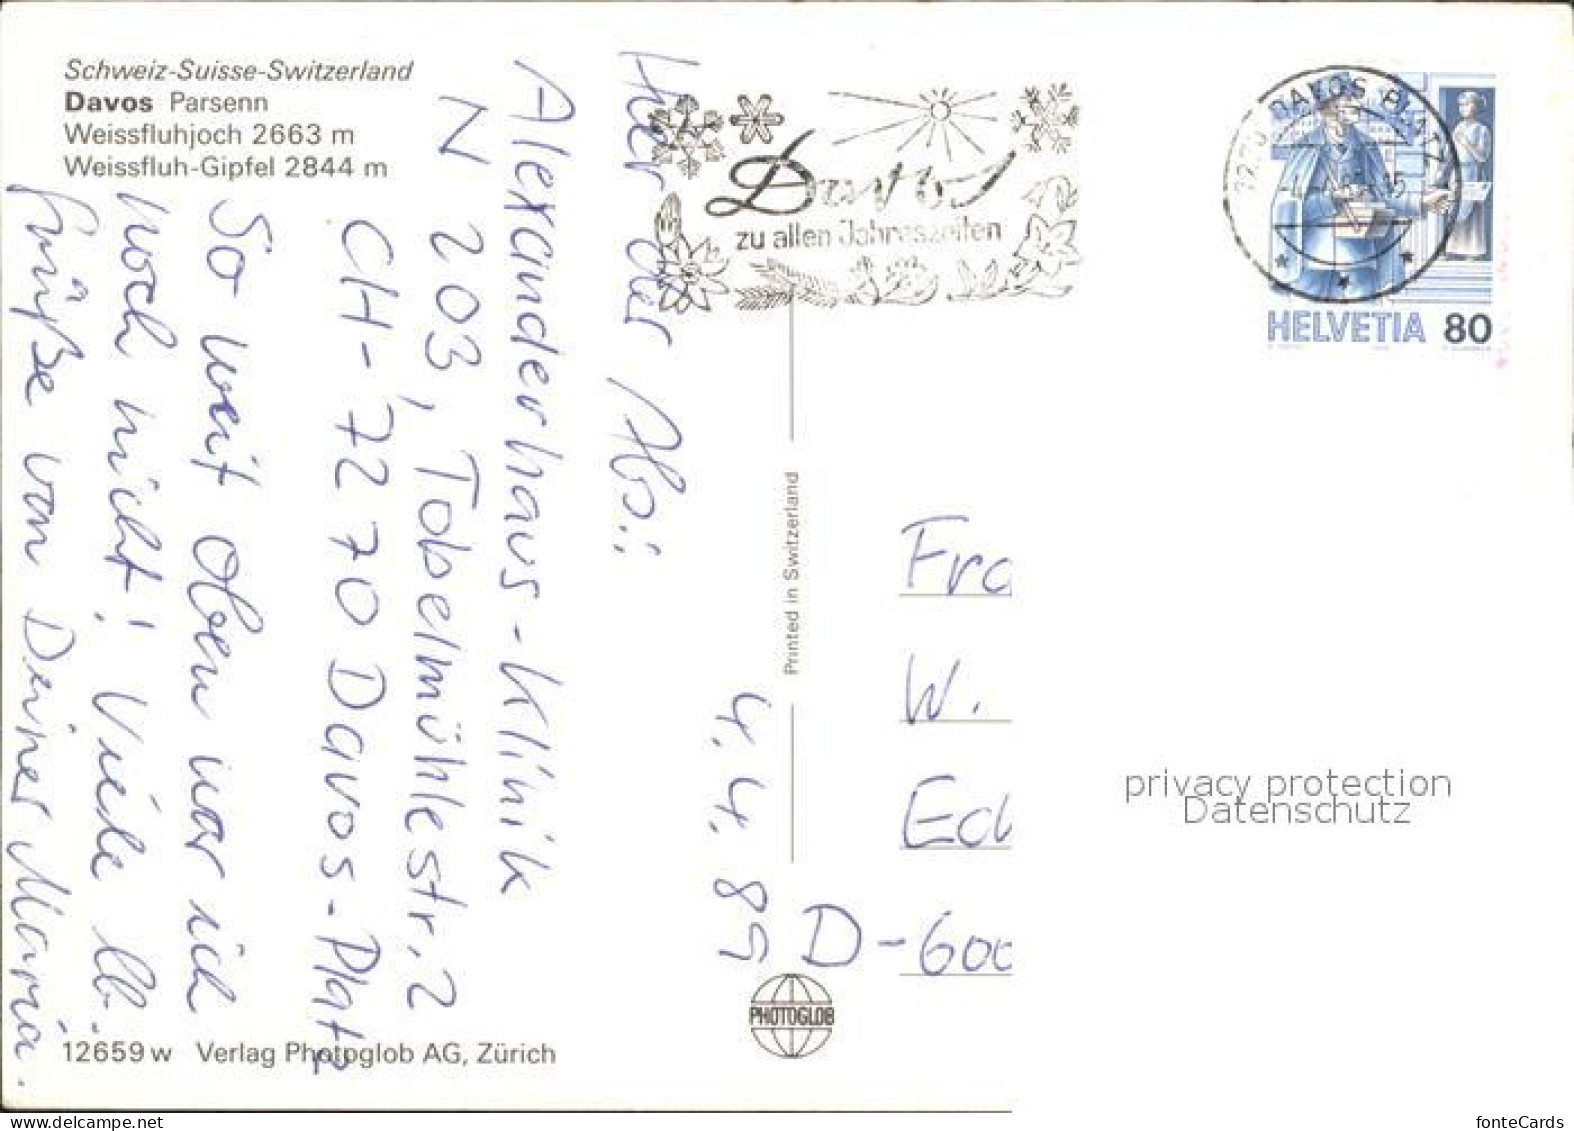 Schweiz-Suisse-Switzerland
Davos Parsenn
Weissfluhjoch 2663 m
Weissfluh-Gipfel 2844 m
Davos
zu allen Jahreszeiten
7270 DAVOS PLATZ
HELVETIA 80
4.4.89
Hier der Abs.:
Alexanderhaus-Klinik
N 203, Tobelmühlestr. 2
CH-7270 Davos-Platz
So weit oben war ich
noch nicht! Viele lb.
Grüße von Deiner Maria.
Printed in Switzerland
Fra
W.
Ed
D-600
privacy protection
Datenschutz
PHOTOGLOB
12659 w Verlag Photoglob AG, Zürich
fonteCards